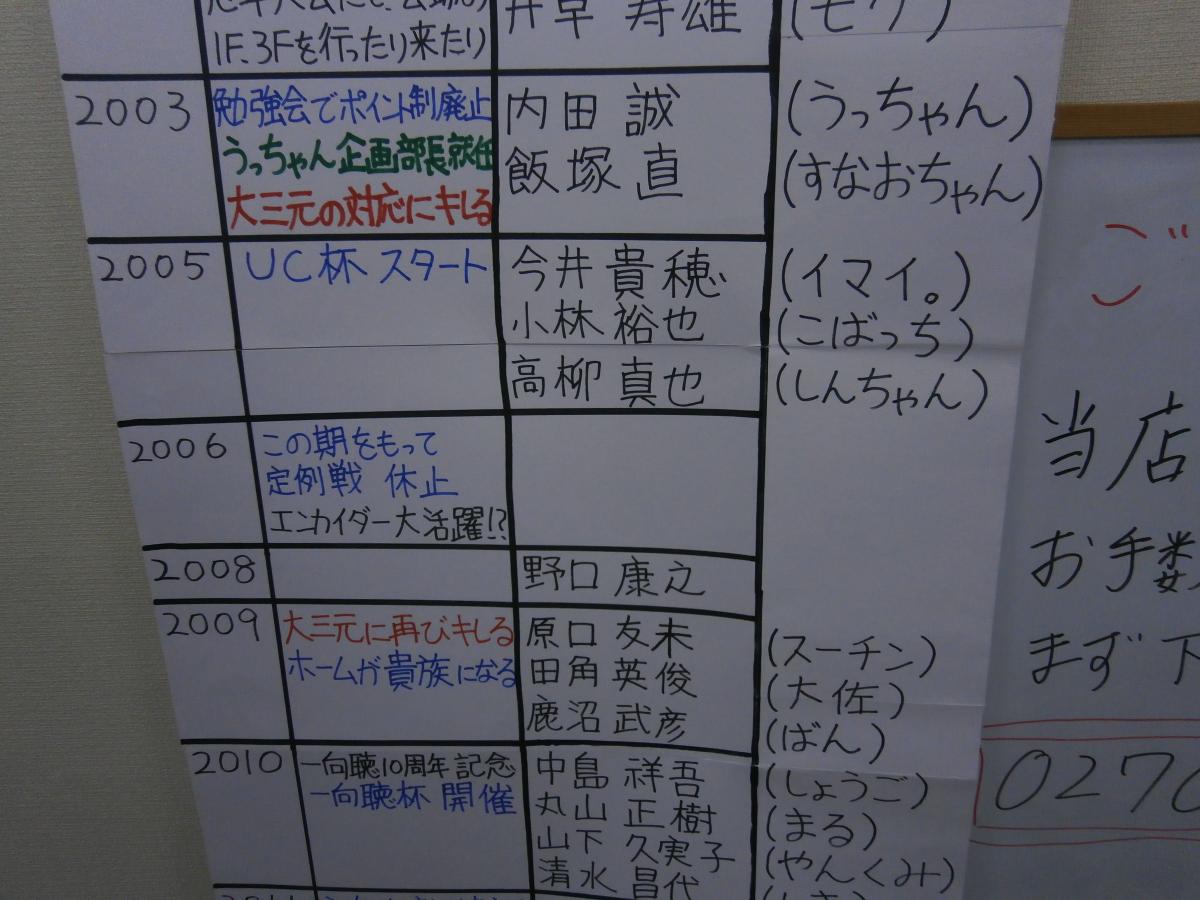 1F、3Fを行ったり来たり
井草 寿雄
(モク)
2003
勉強会でポイント制廃止
うっちゃん企画部長就任
大三元の対応にキレる
内田 誠
飯塚 直
(うっちゃん)
(すなおちゃん)
2005
UC杯 スタート
今井 貴穂
小林 裕也
高柳 真也
(イマイ。)
(こばっち)
(しんちゃん)
2006
この期をもって
定例戦 休止
エンカイダー大活躍!?
2008
野口 康之
2009
大三元に再びキレる
ホームが貴族になる
原口 友未
田角 英俊
鹿沼 武彦
(スーチン)
(大佐)
(ばん)
2010
一向聴10周年記念
一向聴杯 開催
中島 祥吾
丸山 正樹
山下 久実子
清水 昌代
(しょうご)
(まる)
(やんくみ)
当店
お手数
まず下
0270